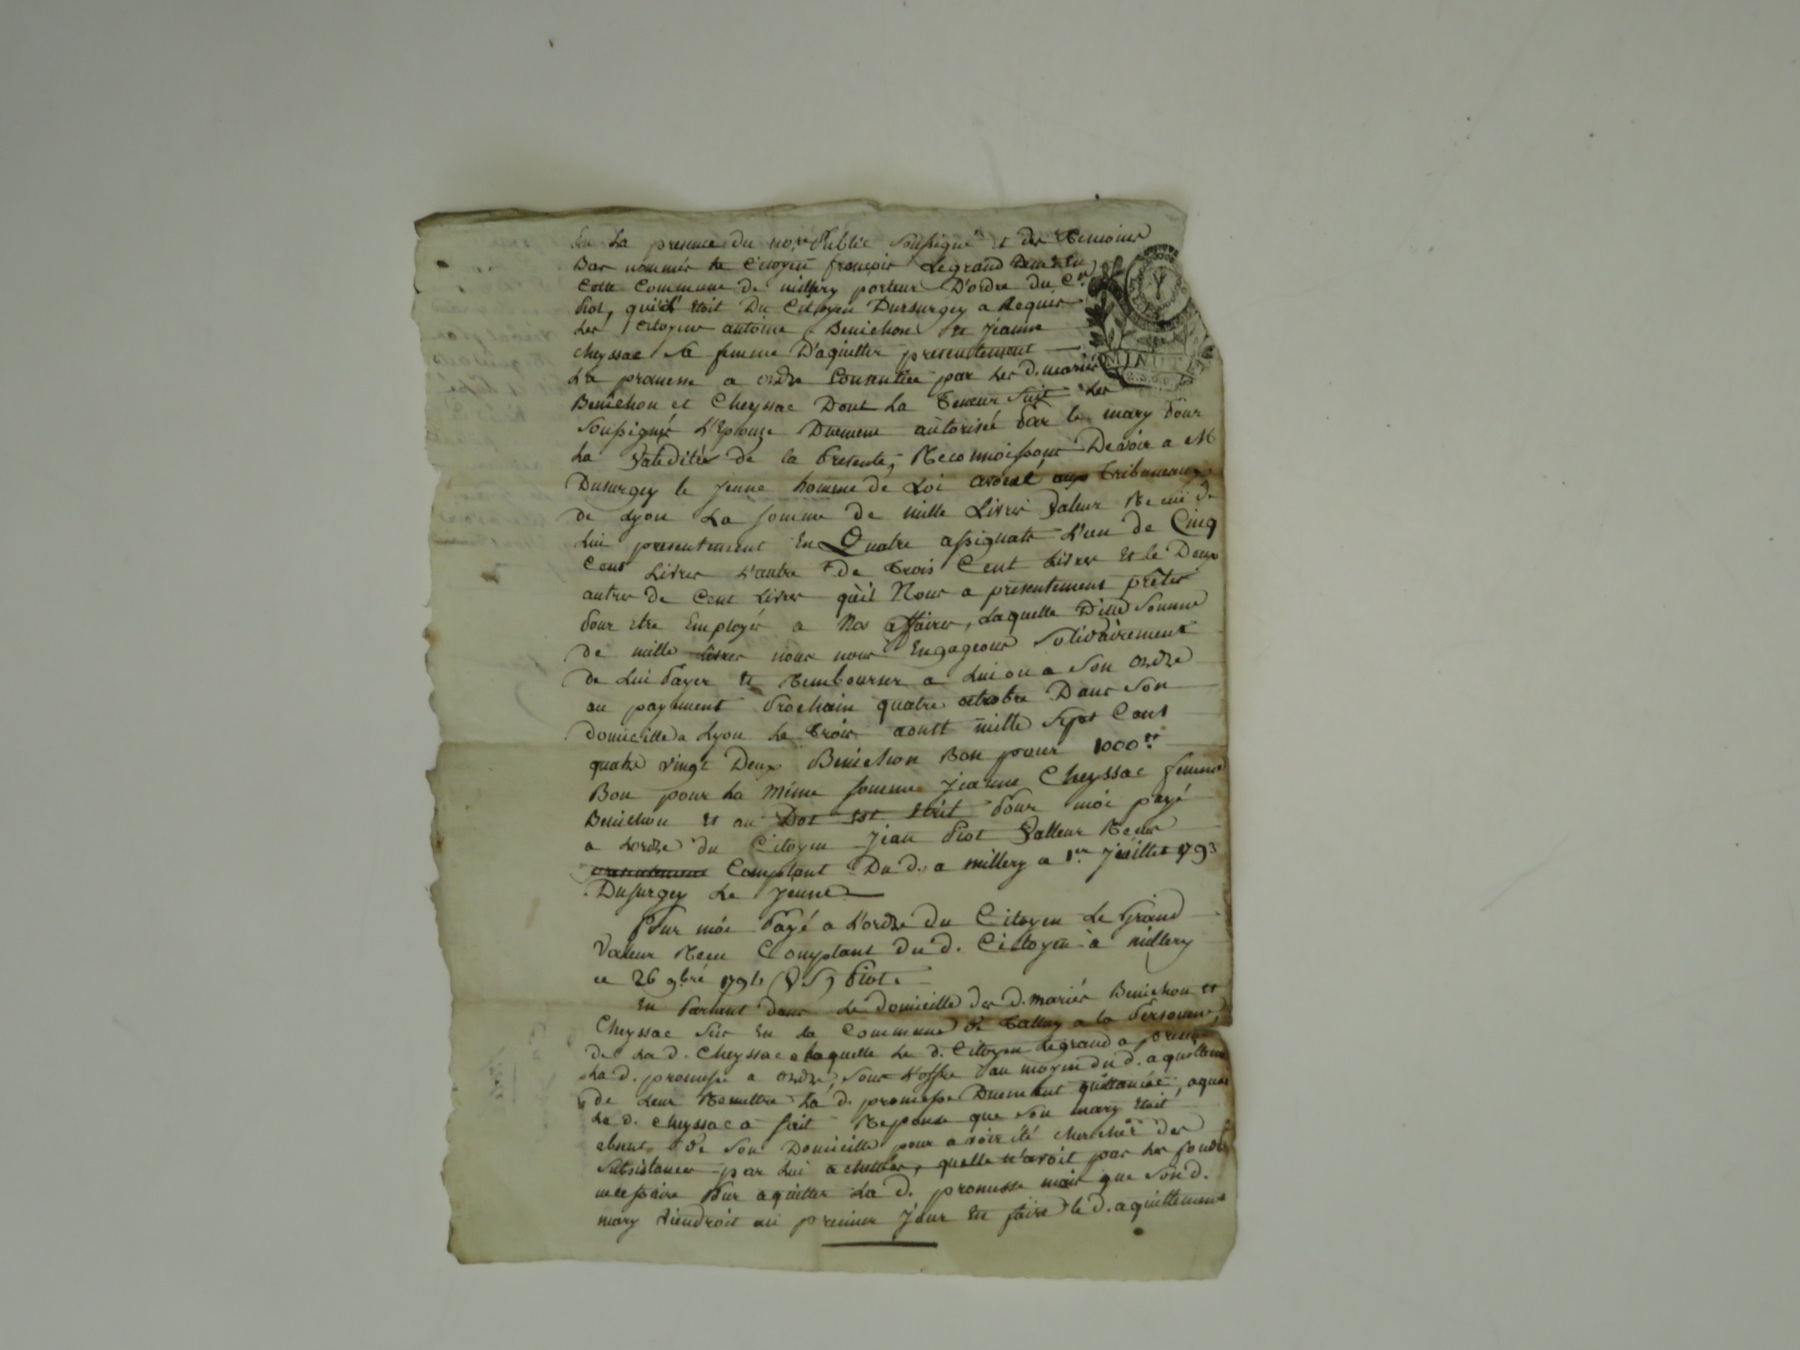 En La presence du no.re Public soussigné et des Temoins
Bas nommés le Citoyen françois Legrand Dem.t En
Cette Commune de millery porteur D'ordre du C.en
Piot, qui l'etoit Du Citoyen Dursurgey a Requis
Les Citoyens antoine Benichon et jeanne
cheyssac sa femme D'aquitter presentement
La promesse a ordre Consentie par Les d. mariés
Benichon et Cheyssac Dont La Teneur suit Les
Soussignés L'Epouse Duement autorisée Par le mary Pour
La Validitée de la Presente, Reconnoissons Devoir a M
Dusurgey le jeune homme de Loi avoué aux Tribuneaux
de Lyon La somme de mille Livres Valeur Recue de
Lui presentement En Quatre assignats L'un de Cinq
Cent Livres L'autre de Trois Cent Livres Et le Deux
autres de Cent Livres qu'il Nous a presentement prêtés
Pour etre Employés a Nos affaires, Laquelle Ditte Somme
de mille Livres nous nous Engageons Solidairement
de Lui Payer et Rembourser a Lui ou a Son ordre
au payement Prochain quatre octobre Dans Son
domicille a Lyon Le Trois aoust mille Sept Cent
quatre vingt Deux Benichon Bon pour 1000 tt
Bon pour La même somme jeanne Cheyssac femme
Benichon et au Dos est Ecrit Pour moi payé
a Lordre du Citoyen Jean Piot Valleur Recue
Comptant Du d. a millery a 1er juillet 1793
Dusurgey Le jeune
Pour moi Payé a L'ordre du Citoyen Le Grand
Valeur Recue Comptant du d. Citoyen à millery
ce 26 9bre 1794 (V S) Piot.
En Parlant dans Le domicille des d. mariés Benichon et
Cheyssac Sis En La Commune de Talluy a la Personne
de La d. Cheyssac a laquelle Le d. Citoyen Legrand a
La d. promesse a ordre, sous L'offre au moyen du d. aquittement
de Leur Remettre La d. promesse Duement quittancée, aquoi
La d. Cheyssac a fait Reponse que son mary Etoit
absent de Son Domicille pour avoir été chercher des
Subsistances par Lui achettées, quelle n'avoit pas Les fonds
necessaire Pour aquitter La d. promesse mais que Son d.
mary viendroit au premier jour En faire le d. aquittement
MINUTE